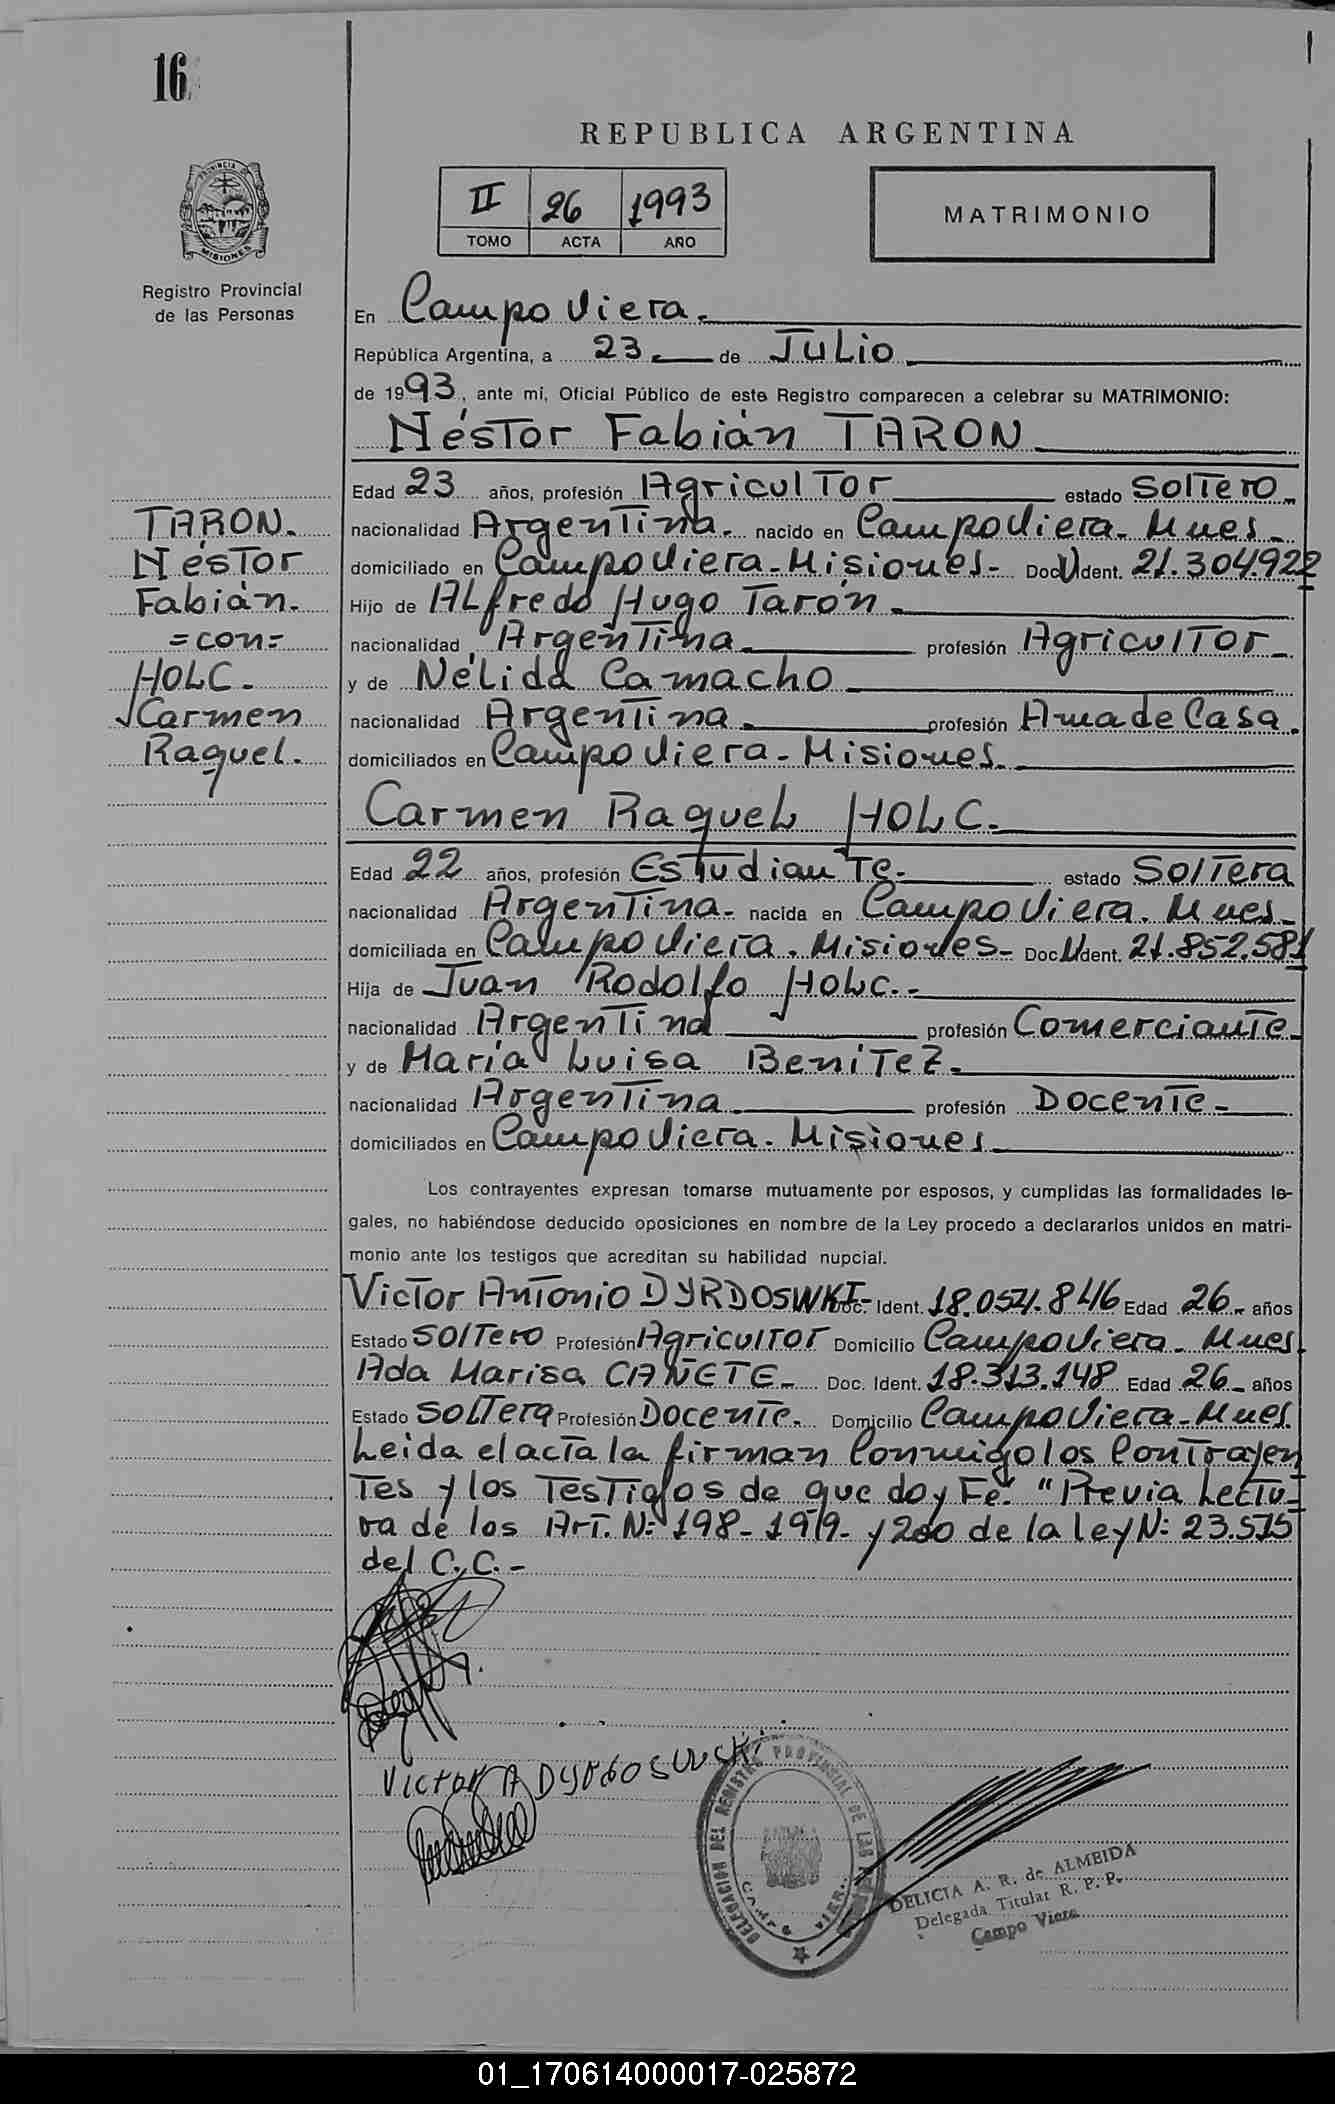 16
REPUBLICA ARGENTINA
II 26 1993
TOMO ACTA AÑO
MATRIMONIO
PROVINCIA DE MISIONES
Registro Provincial
de las Personas
En Campo Viera.
República Argentina, a 23 de JULIO
de 1993, ante mi, Oficial Público de este Registro comparecen a celebrar su MATRIMONIO:
Néstor Fabián TARON
Edad 23 años, profesión Agricultor estado Soltero
nacionalidad Argentina. nacido en Campo Viera. Mnes.
domiciliado en Campo Viera - Misiones - Doc U Ident. 21.304.922
Hijo de Alfredo Hugo Tarón
nacionalidad Argentina profesión Agricultor
y de Nélida Camacho
nacionalidad Argentina. profesión Ama de Casa.
domiciliados en Campo Viera - Misiones.
TARON.
Néstor
Fabián.
=con=
HOLC.
Carmen
Raquel.
Carmen Raquel HOLC.
Edad 22 años, profesión Estudiante. estado Soltera
nacionalidad Argentina. nacida en Campo Viera. Mnes.
domiciliada en Campo Viera. Misiones - Doc U Ident. 21.852.581
Hija de Juan Rodolfo Holc.
nacionalidad Argentina profesión Comerciante
y de María Luisa Benitez.
nacionalidad Argentina. profesión Docente
domiciliados en Campo Viera. Misiones
Los contrayentes expresan tomarse mutuamente por esposos, y cumplidas las formalidades le-
gales, no habiéndose deducido oposiciones en nombre de la Ley procedo a declararlos unidos en matri-
monio ante los testigos que acreditan su habilidad nupcial.
Victor Antonio DYRDOSWKI - Doc. Ident. 18.054.846 Edad 26 años
Estado Soltero Profesión Agricultor Domicilio Campo Viera - Mnes.
Ada Marisa CAÑETE - Doc. Ident. 18.313.148 Edad 26 años
Estado Soltera Profesión Docente. Domicilio Campo Viera - Mnes.
Leida el acta la firman Conmigo los Contrayen
tes y los Testigos de que doy Fe. "Previa Lectu-
ra de los Art. N: 198 - 199 - y 200 de la ley N: 23.515
del C.C. -
VICTOR A DYRDOSWSKi
DELEGACION DEL REGISTRO PROVINCIAL DE LAS
CAMPO VIERA
DELICIA A. R. de ALMEIDA
Delegada Titular R. P. P.
Campo Viera
01_170614000017-025872